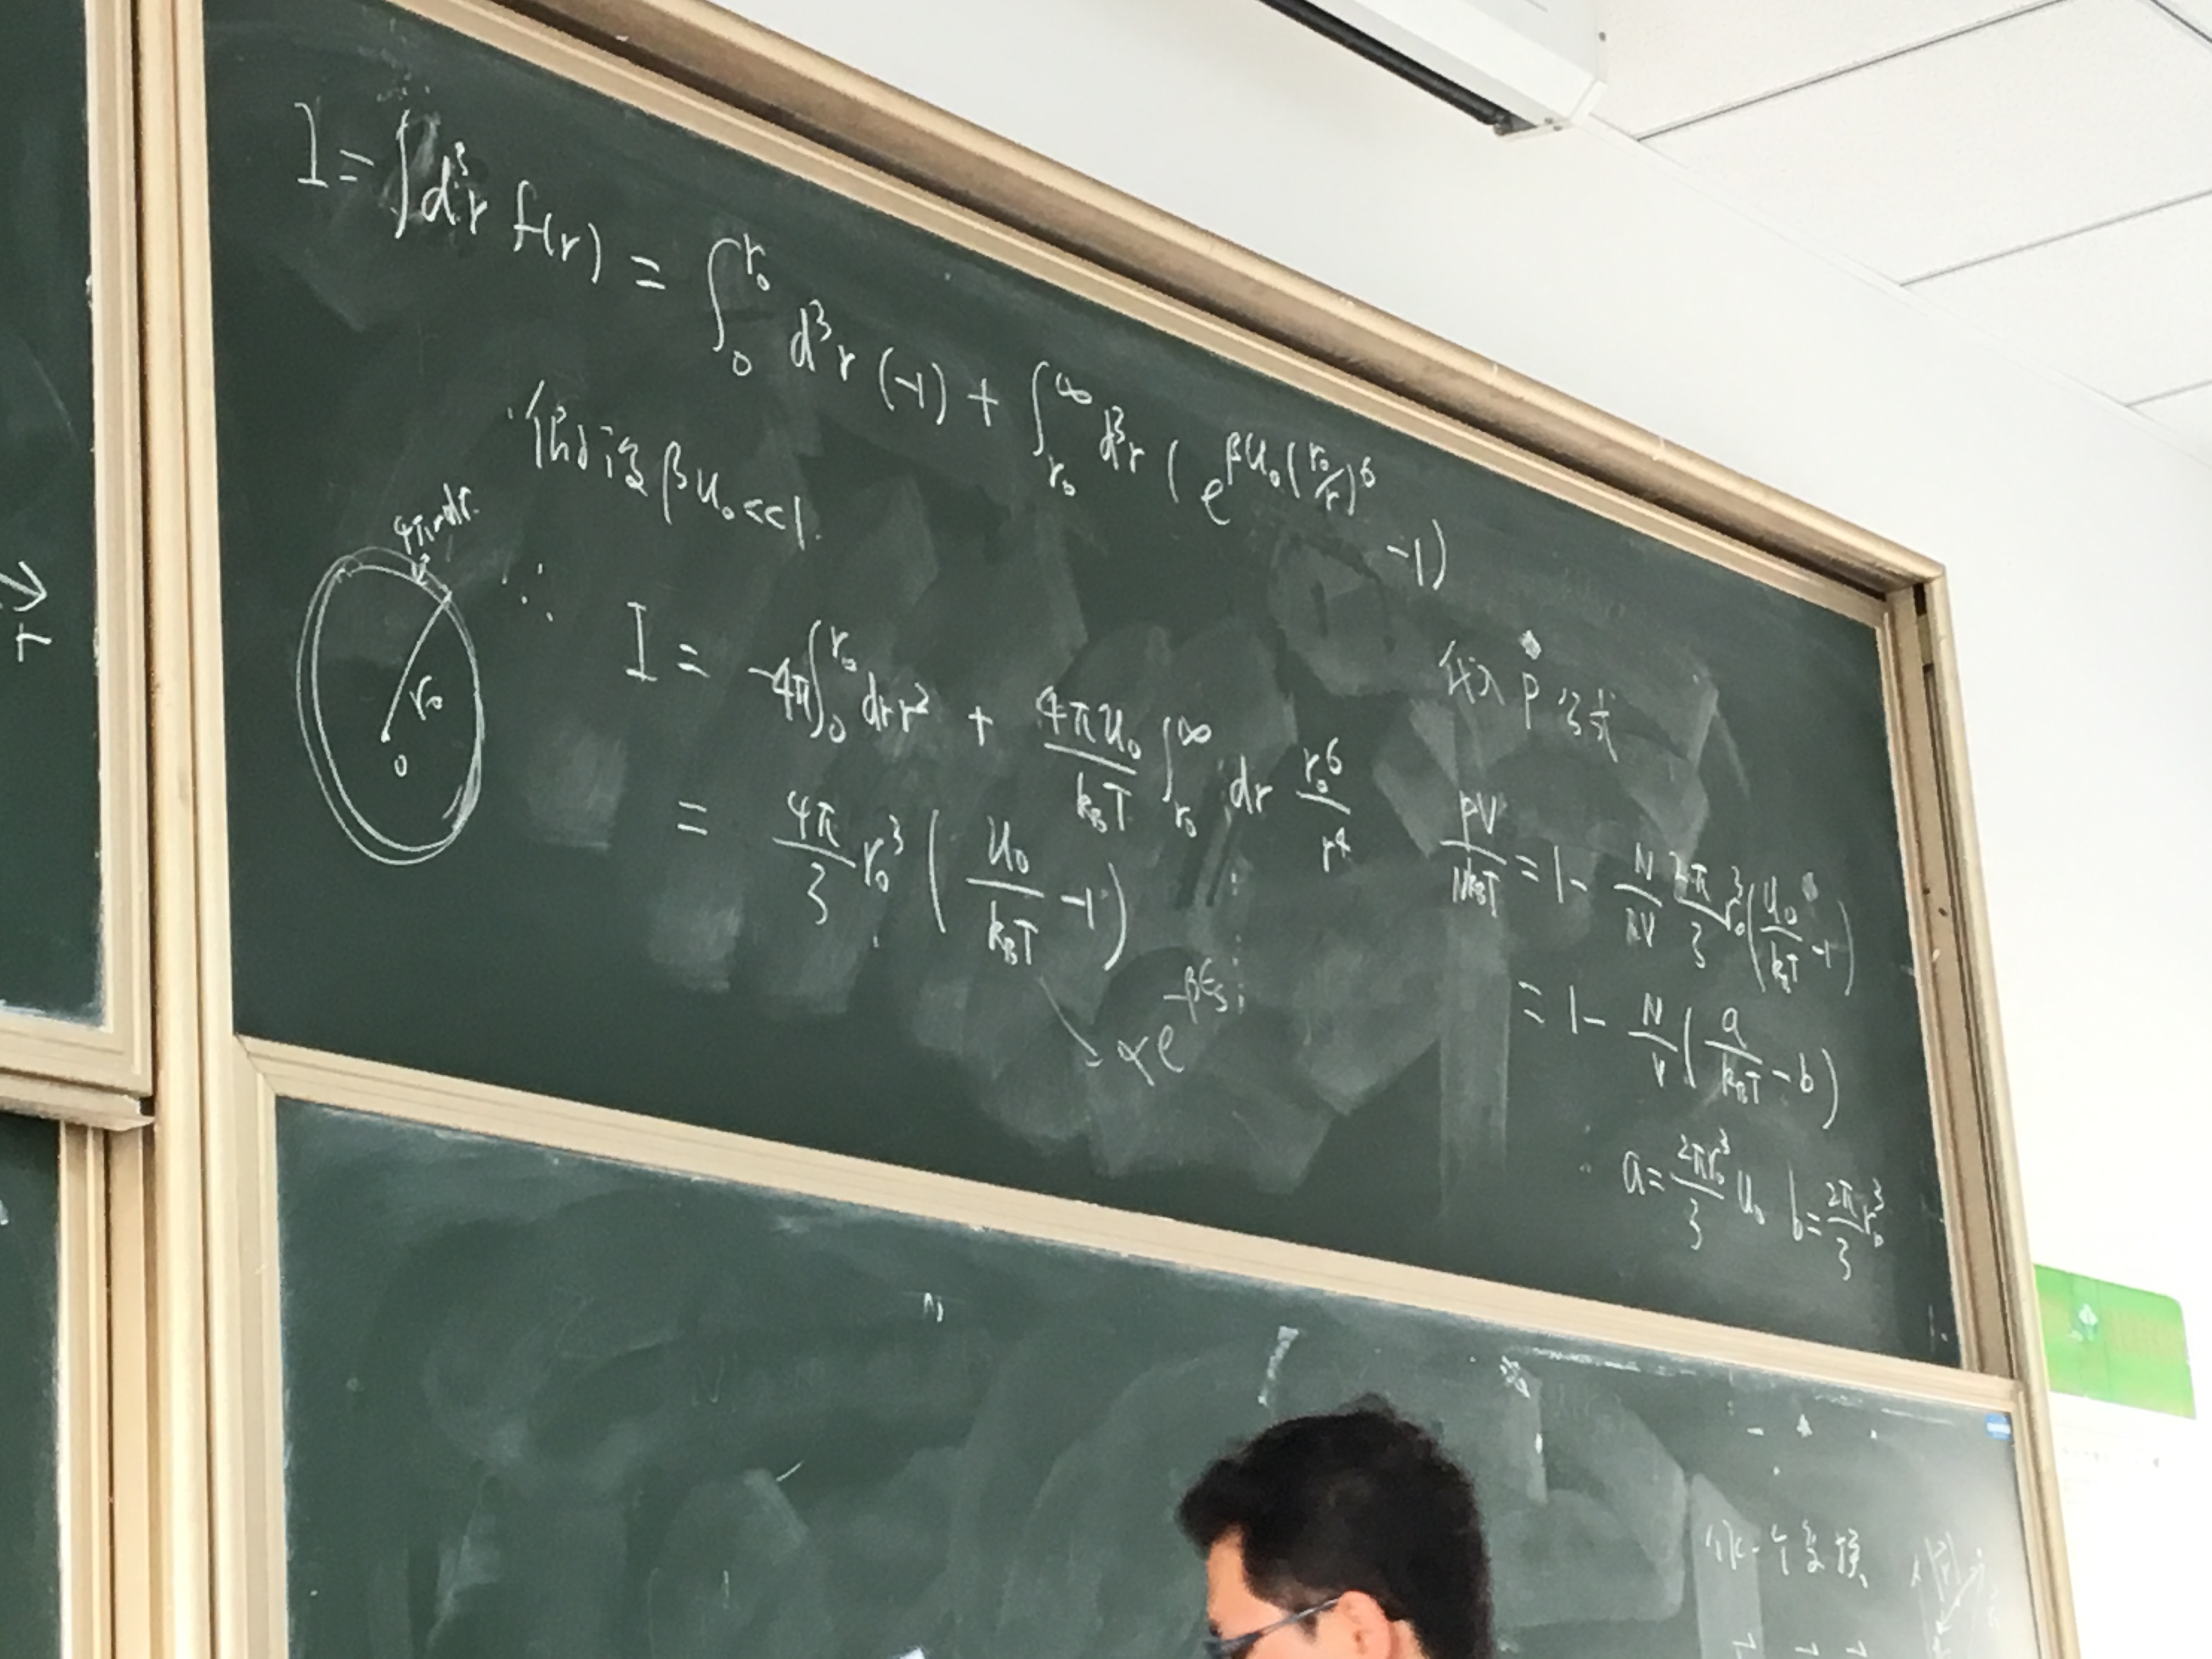 I = ∫ d³r f(r) = ∫₀^{r₀} d³r (-1) + ∫_{r₀}^∞ d³r ( e^{βu₀(r₀/r)⁶} -1)
假设 βu₀<<1.
4πrdr.
r₀
0
∴ I = -4π∫₀^{r₀} dr r² + \frac{4πu₀}{k_BT} ∫_{r₀}^∞ dr \frac{r₀⁶}{r⁴}
= \frac{4π}{3} r₀³ ( \frac{u₀}{k_BT} -1)
∝ e^{-βε_s}
代入 P 公式
\frac{PV}{Nk_BT} = 1 - \frac{N}{V} \frac{2π}{3} r₀³ ( \frac{u₀}{k_BT} -1)
= 1 - \frac{N}{V} ( \frac{a}{k_BT} - b)
a = \frac{2πr₀³}{3} u₀ b = \frac{2π}{3} r₀³
r
做一个变换